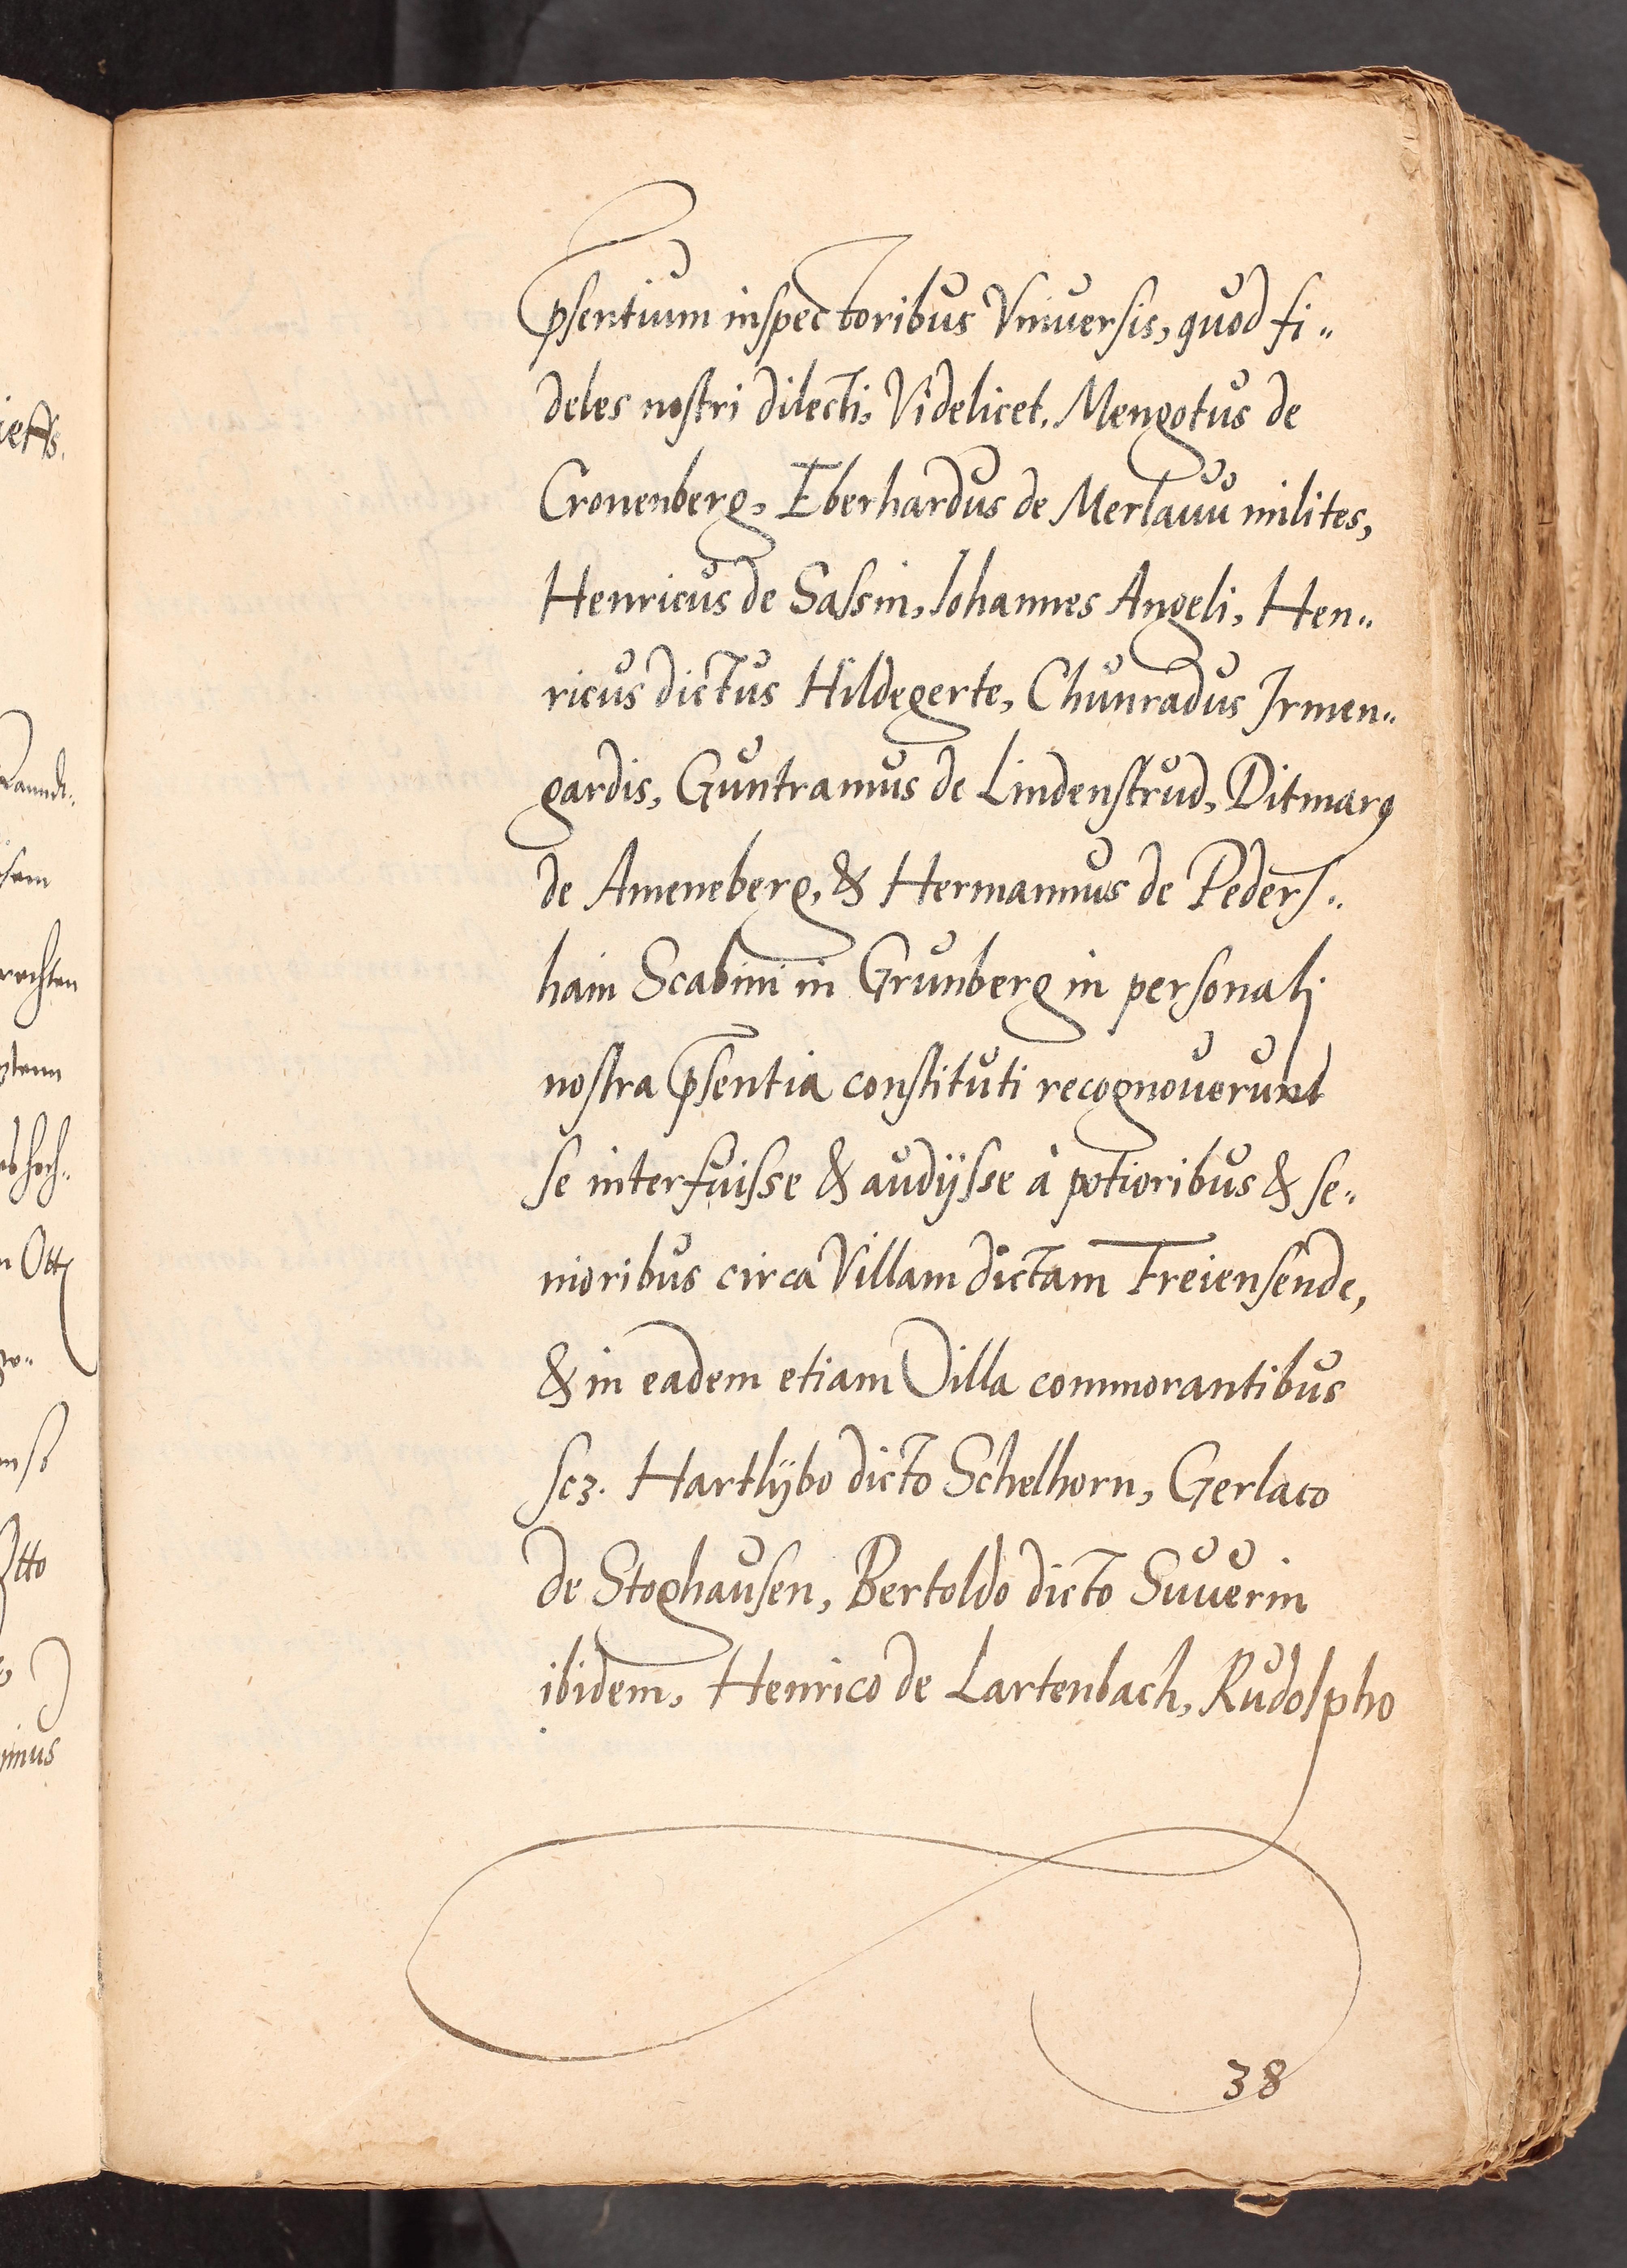 psentium inspectoribus Vniuersis, quod fi„
deles nostri dilecti, Videlicet. Mengotus de
Cronenberg, Eberhardus de Merlauu milites,
Henricus de Sassin, Iohannes Angeli, Hen„
ricus dictus Hildegerte, Chunradus Irmen„
gardis, Guntramus de Lindenstrud, Ditmarꝰ
de Ameneberg, & Hermannus de Peders„
hain Scabini in Grunberg in personali
nostra psentia constituti recognouerunt
se interfuisse & audijsse à potioribus & se„
nioribus circa Villam dictam Freiensende,
& in eadem etiam Villa commorantibus
scz. Hartlybo dicto Schelhorn, Gerlaco
de Stoghausen, Bertoldo dicto Suuerin
ibidem, Henrico de Lartenbach, Rudolpho
38